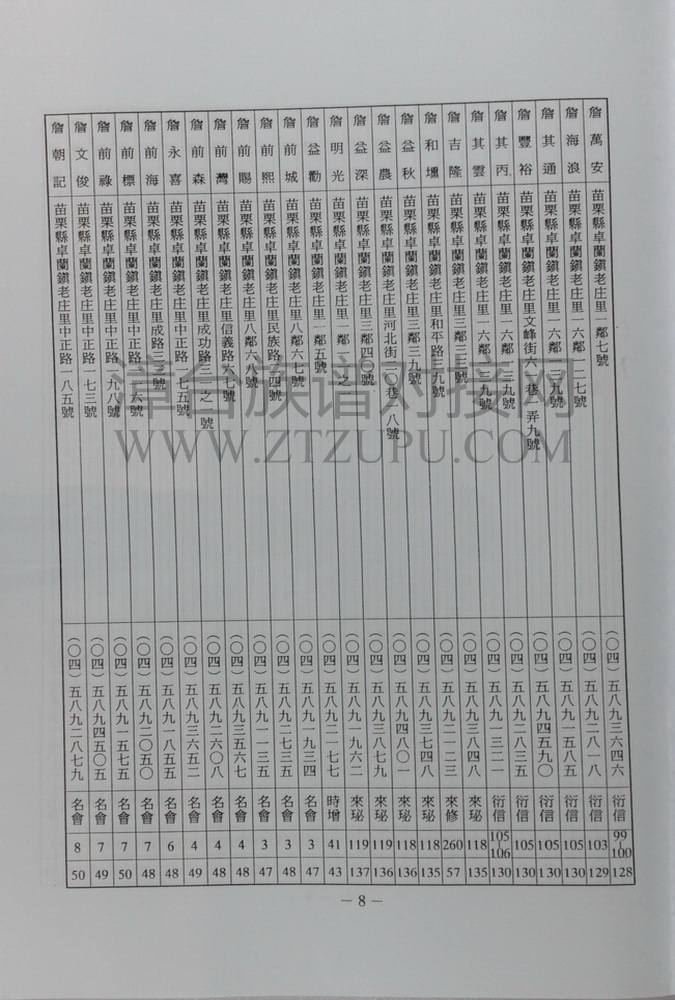 詹萬安 苗栗縣卓蘭鎮老庄里一鄰七號 (〇四)五八九三六四六 衍信 99-100 128
詹海浪 苗栗縣卓蘭鎮老庄里一六鄰一二七號 (〇四)五八九二八一八 衍信 103 129
詹其通 苗栗縣卓蘭鎮老庄里一六鄰 (〇四)五八九一五八五 衍信 105 130
詹豐裕 苗栗縣卓蘭鎮老庄里文峰街六 巷一弄九號 (〇四)五八九四五九〇 衍信 105 130
詹其丙 苗栗縣卓蘭鎮老庄里一六鄰一三九號 (〇四)五八九二八三五 衍信 105 130
詹其雲 苗栗縣卓蘭鎮老庄里一六鄰 九號 (〇四)五八九一三二一 衍信 105-106 130
詹吉隆 苗栗縣卓蘭鎮老庄里三鄰三 號 (〇四)五八九三八四八 來珌 118 135
詹和壎 苗栗縣卓蘭鎮老庄里和平路三九號 (〇四)五八九二一二三 來修 260 57
詹益秋 苗栗縣卓蘭鎮老庄里三鄰三九號 (〇四)五八九三七四八 來珌 118 135
詹益農 苗栗縣卓蘭鎮老庄里河北街一〇巷一八號 (〇四)五八九四八〇一 來珌 118 136
詹益深 苗栗縣卓蘭鎮老庄里三鄰四〇號 (〇四)五八九三八七九 來珌 119 136
詹明光 苗栗縣卓蘭鎮老庄里一鄰 之 (〇四)五八九一九六二 來珌 119 137
詹益勳 苗栗縣卓蘭鎮老庄里一鄰五號 (〇四)五八九二一七七 時增 41 43
詹前城 苗栗縣卓蘭鎮老庄里八鄰六七號 (〇四)五八九一九三四 名會 3 47
詹前熙 苗栗縣卓蘭鎮老庄里民族路 四號 (〇四)五八九二七三五 名會 3 48
詹前賜 苗栗縣卓蘭鎮老庄里八鄰六八號 (〇四)五八九一一三五 名會 3 47
詹前灣 苗栗縣卓蘭鎮老庄里信義路六七號 (〇四)五八九三五六七 名會 4 48
詹前森 苗栗縣卓蘭鎮老庄里成功路三 之 號 (〇四)五八九二六〇八 名會 4 48
詹永喜 苗栗縣卓蘭鎮老庄里中正路 七五號 (〇四)五八九三六五二 名會 4 49
詹前海 苗栗縣卓蘭鎮老庄里成路三 號 (〇四)五八九一八五五 名會 6 48
詹前標 苗栗縣卓蘭鎮老庄里中正路 六號 (〇四)五八九二〇五〇 名會 7 48
詹前祿 苗栗縣卓蘭鎮老庄里中正路一九八號 (〇四)五八九一五七五 名會 7 50
詹文俊 苗栗縣卓蘭鎮老庄里中正路一七三號 (〇四)五八九四五〇五 名會 7 49
詹朝記 苗栗縣卓蘭鎮老庄里中正路一八五號 (〇四)五八九二八七九 名會 8 50
— 8 —
漳台族谱对接网
WWW.ZTZUPU.COM